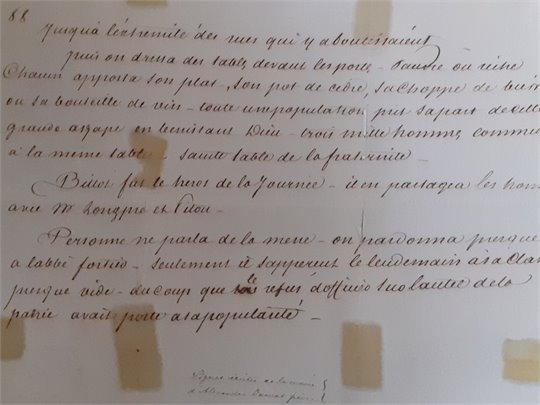 88
jusqu'à l'extremité des rues qui y aboutissaient
puis on dressa des tables devant les portes – Pauvre ou riche
Chacun apporta son plat, son pot de cidre, sa choppe de bierre
ou sa bouteille de vin – toute une population prit sa part de cette
grande agape en benissant Dieu – trois mille hommes commu
à la meme table – sainte table de la fraternité –
Billot fut le heros de la Journée – il en partagea les hon
avec Mr Longpré et Pitou –
Personne ne parla de la mere – on pardonna presque
a labbé fortier – seulement il s'apperçut le lendemain a sa clas
presque vide – du coup que le refus d'officier sur l'autel de la
patrie avait porté a sa popularité –
Lignes écrites de la main
d'Alexandre Dumas père